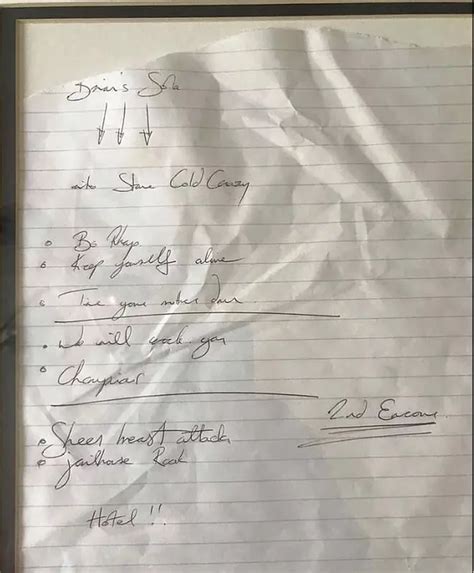 Brian's Solo
into Stone Cold Crazy
• Bo Rhap
• Keep yourself alive
• Tie your mother down
• We will rock you
• Champions
2nd Encore
• Sheer heart attack
• jailhouse Rock
Hotel !!